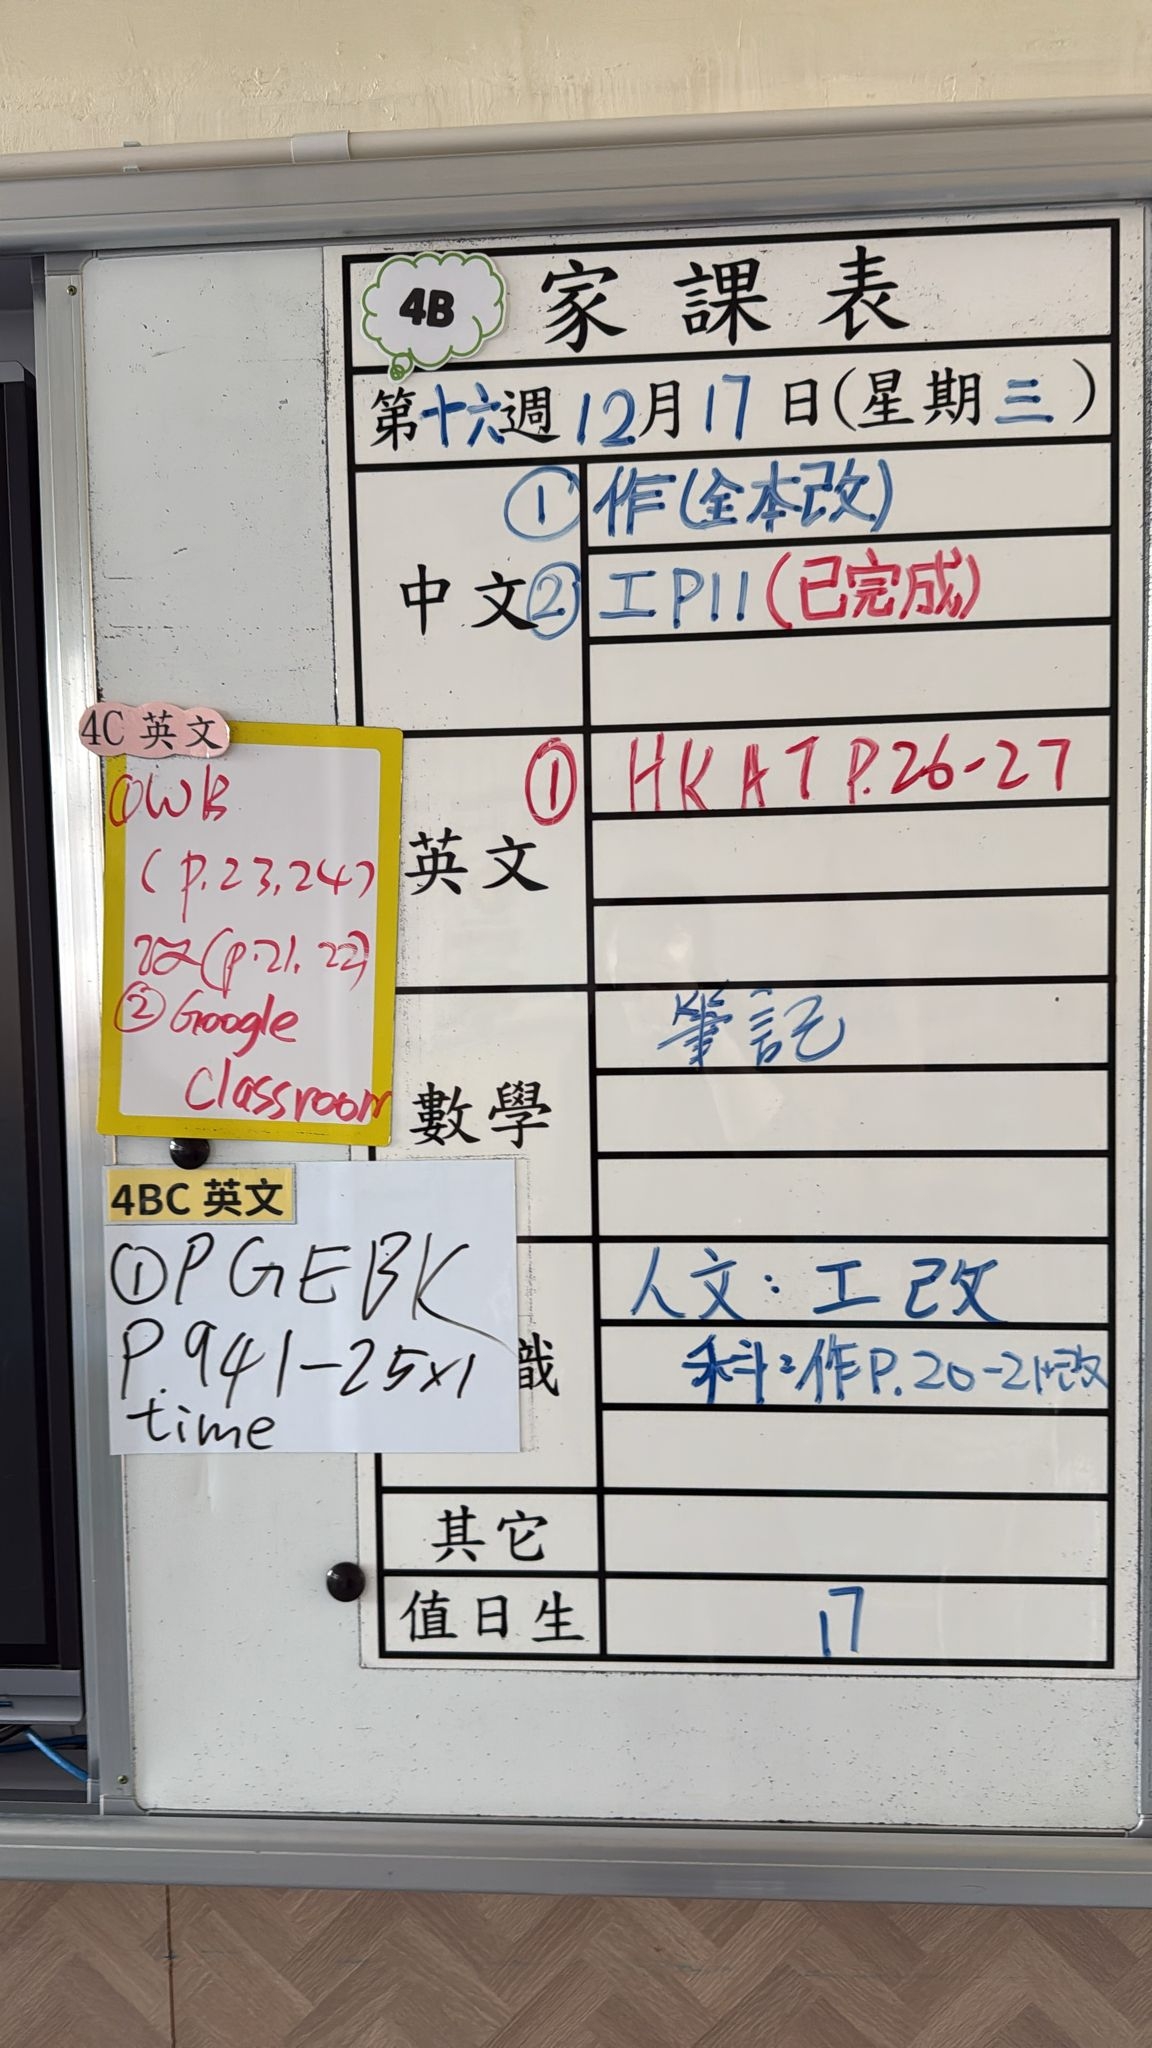 4B 家課表
第十六週12月17日(星期三)
中文
① 作(全本改)
② 工P11(已完成)
英文
① HKAT P.26-27
數學
筆記
識
人文:工改
科:作P.20-21+改
其它
值日生
17
4C 英文
①WB
(p.23,24)
改(p.21,22)
②Google
Classroom
4BC 英文
①PGEBK
P.941-25x1
time